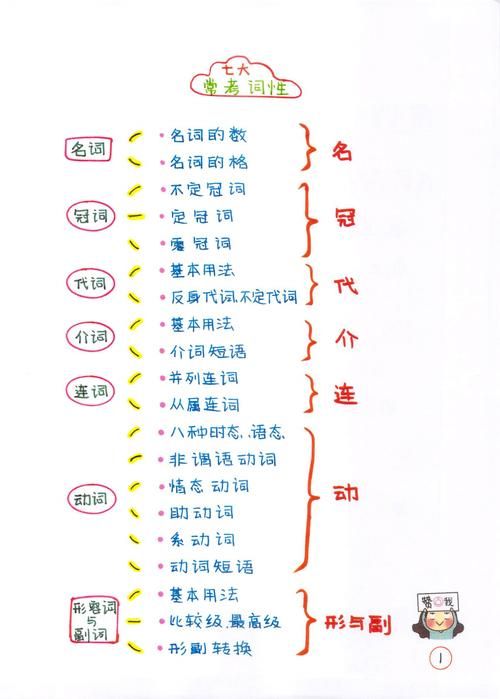 七大
常考词性
名词
• 名词的数
• 名词的格
名
冠词
• 不定冠词
• 定冠词
• 零冠词
冠
代词
• 基本用法
• 反身代词、不定代词
代
介词
• 基本用法
• 介词短语
介
连词
• 并列连词
• 从属连词
连
动词
• 八种时态、语态、
• 非谓语动词
• 情态动词
• 助动词
• 系动词
• 动词短语
动
形容词
与
副词
• 基本用法
• 比较级、最高级
• 形副转换
形与副
赞我
1